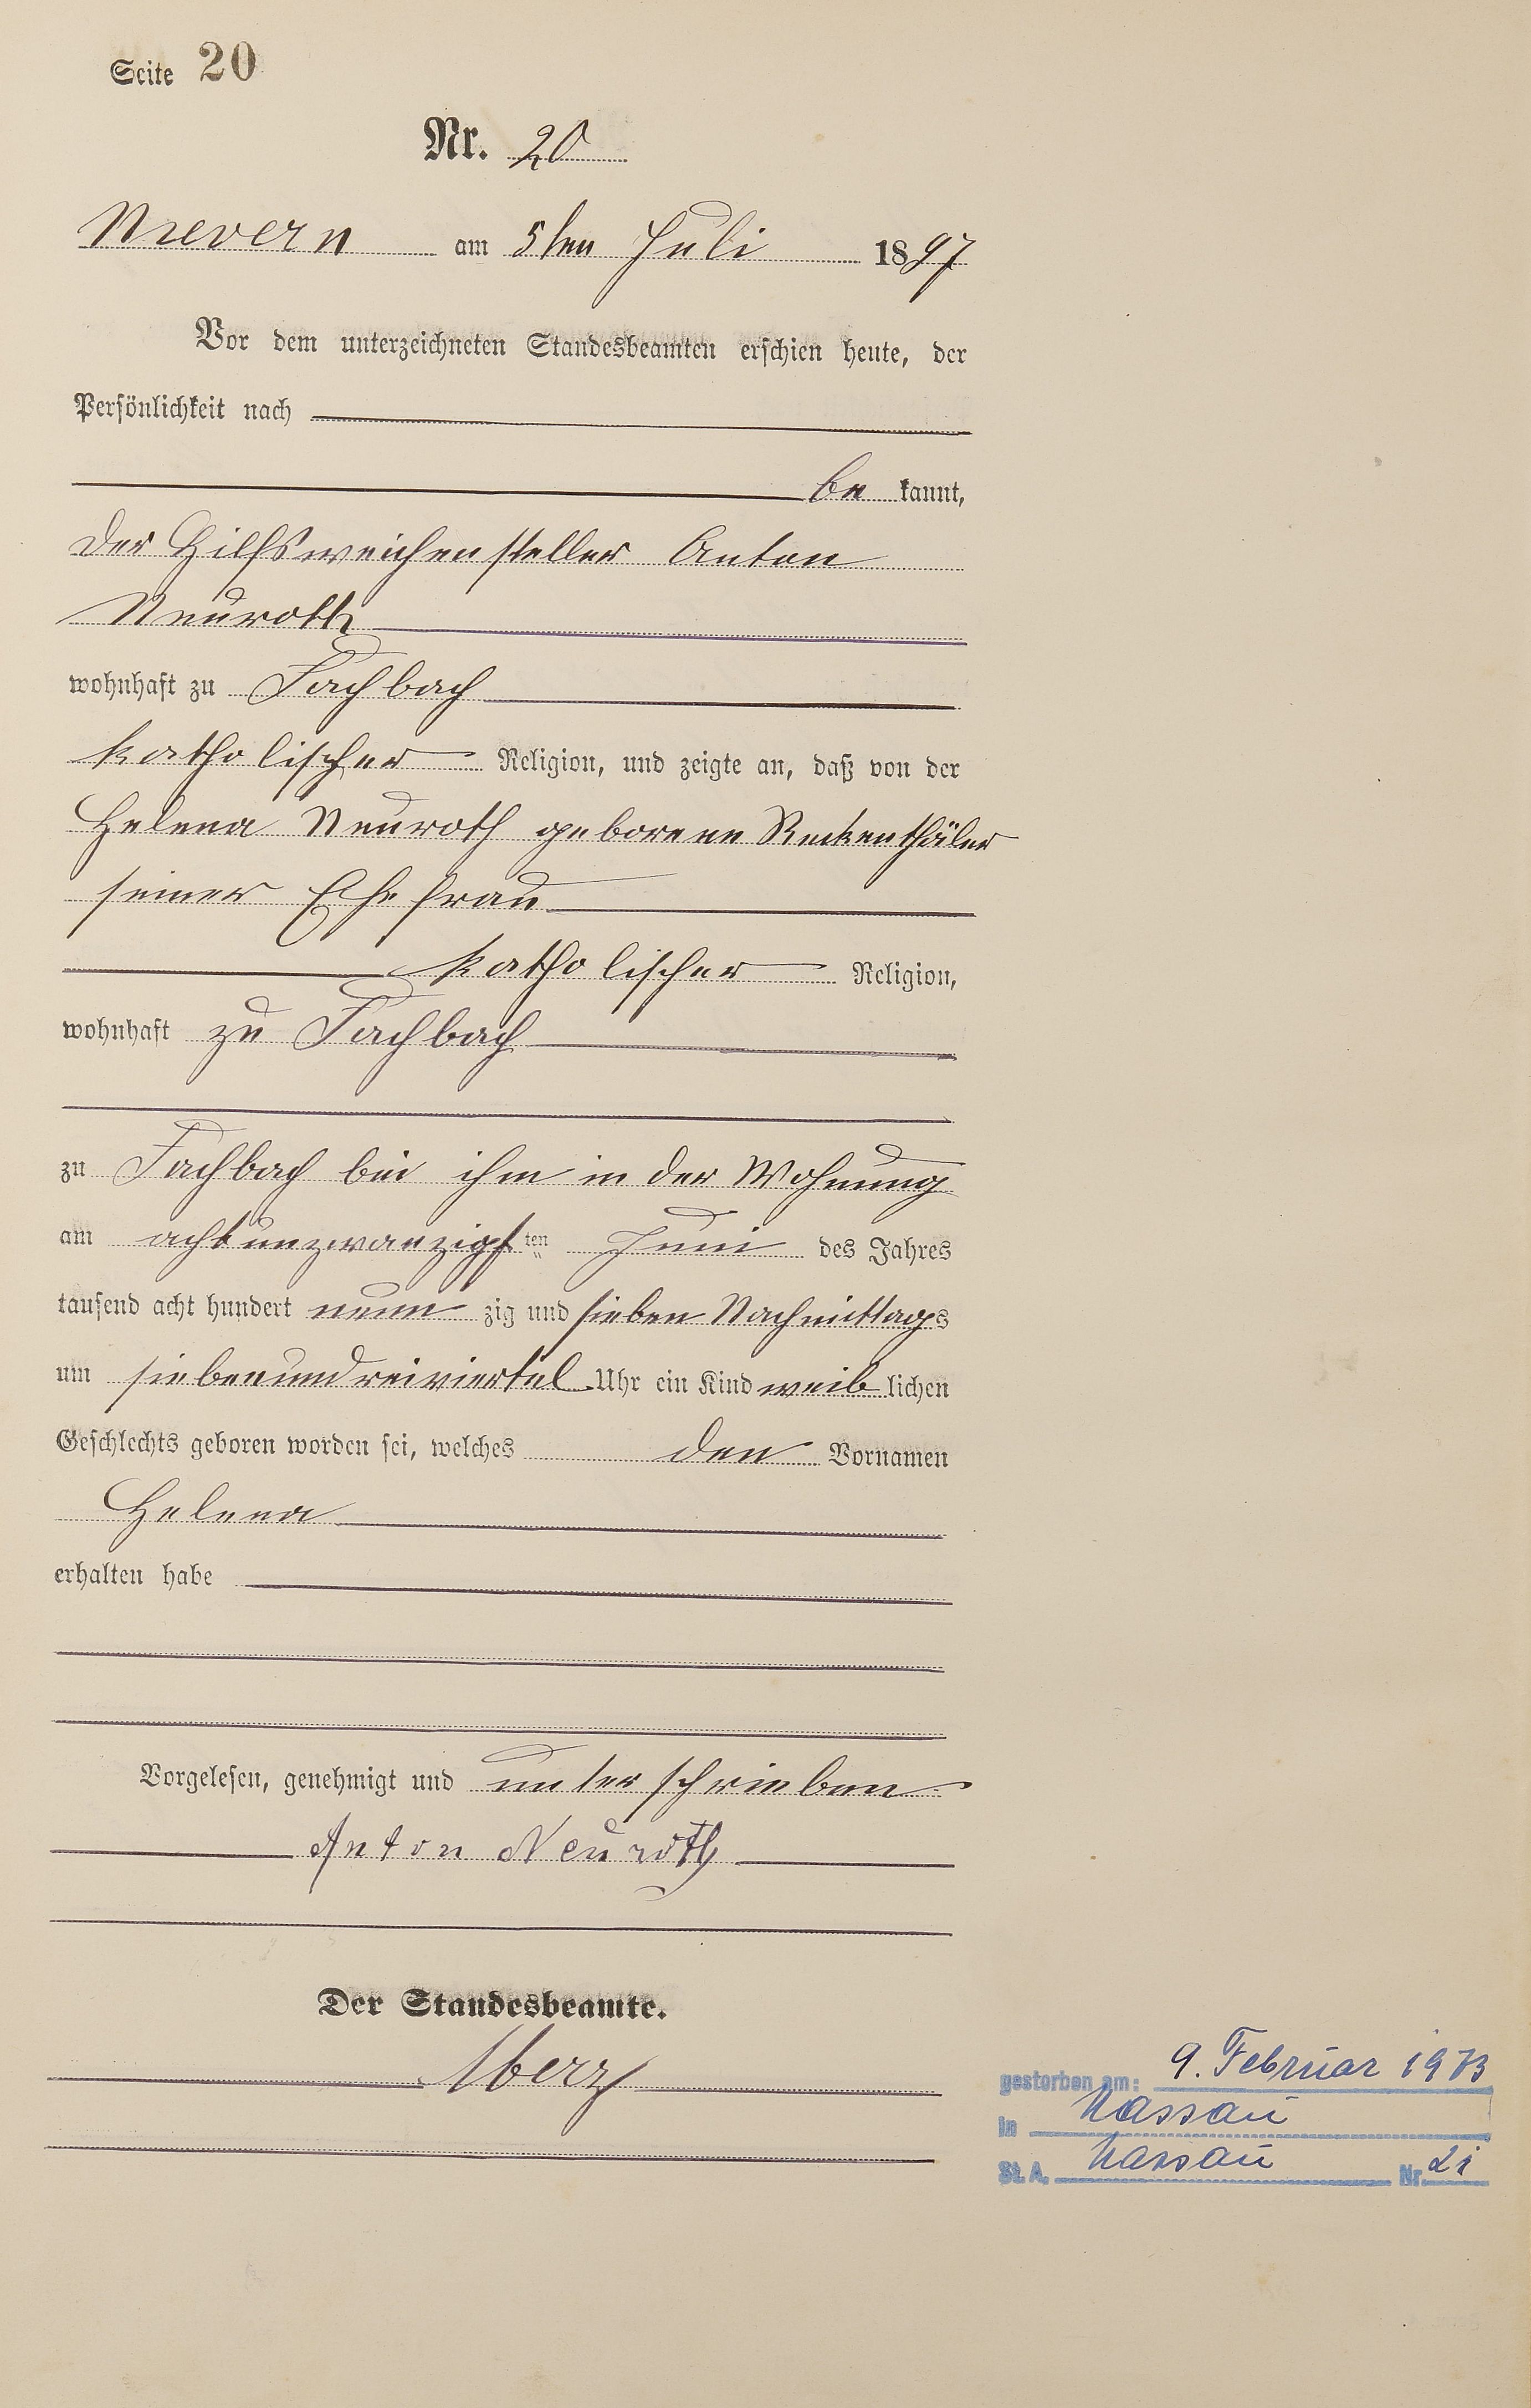 Seite 20
Nr. 20
Nievern am 5ten Juli 1897
Vor dem unterzeichneten Standesbeamten erschien heute, der
Persönlichkeit nach
be kannt,
der Hilfsweichensteller Anton
Neuroth
wohnhaft zu Fachbach
katholischer Religion, und zeigte an, daß von der
Helena Neuroth geborene Reckenthäler
seiner Ehefrau
katholischer Religion,
wohnhaft zu Fachbach
zu Fachbach bei ihm in der Wohnung
am achtunzwanzigsten Juni des Jahres
tausend acht hundert neun zig und sieben Nachmittags
um siebenundreiviertel Uhr ein Kind weib lichen
Geschlechts geboren worden sei, welches den Vornamen
Helena
erhalten habe
Vorgelesen, genehmigt und unterschrieben
Anton Neuroth
Der Standesbeamte.
gestorben am: 9. Februar 1973
in Nassau
St. A. Nassau Nr. 21